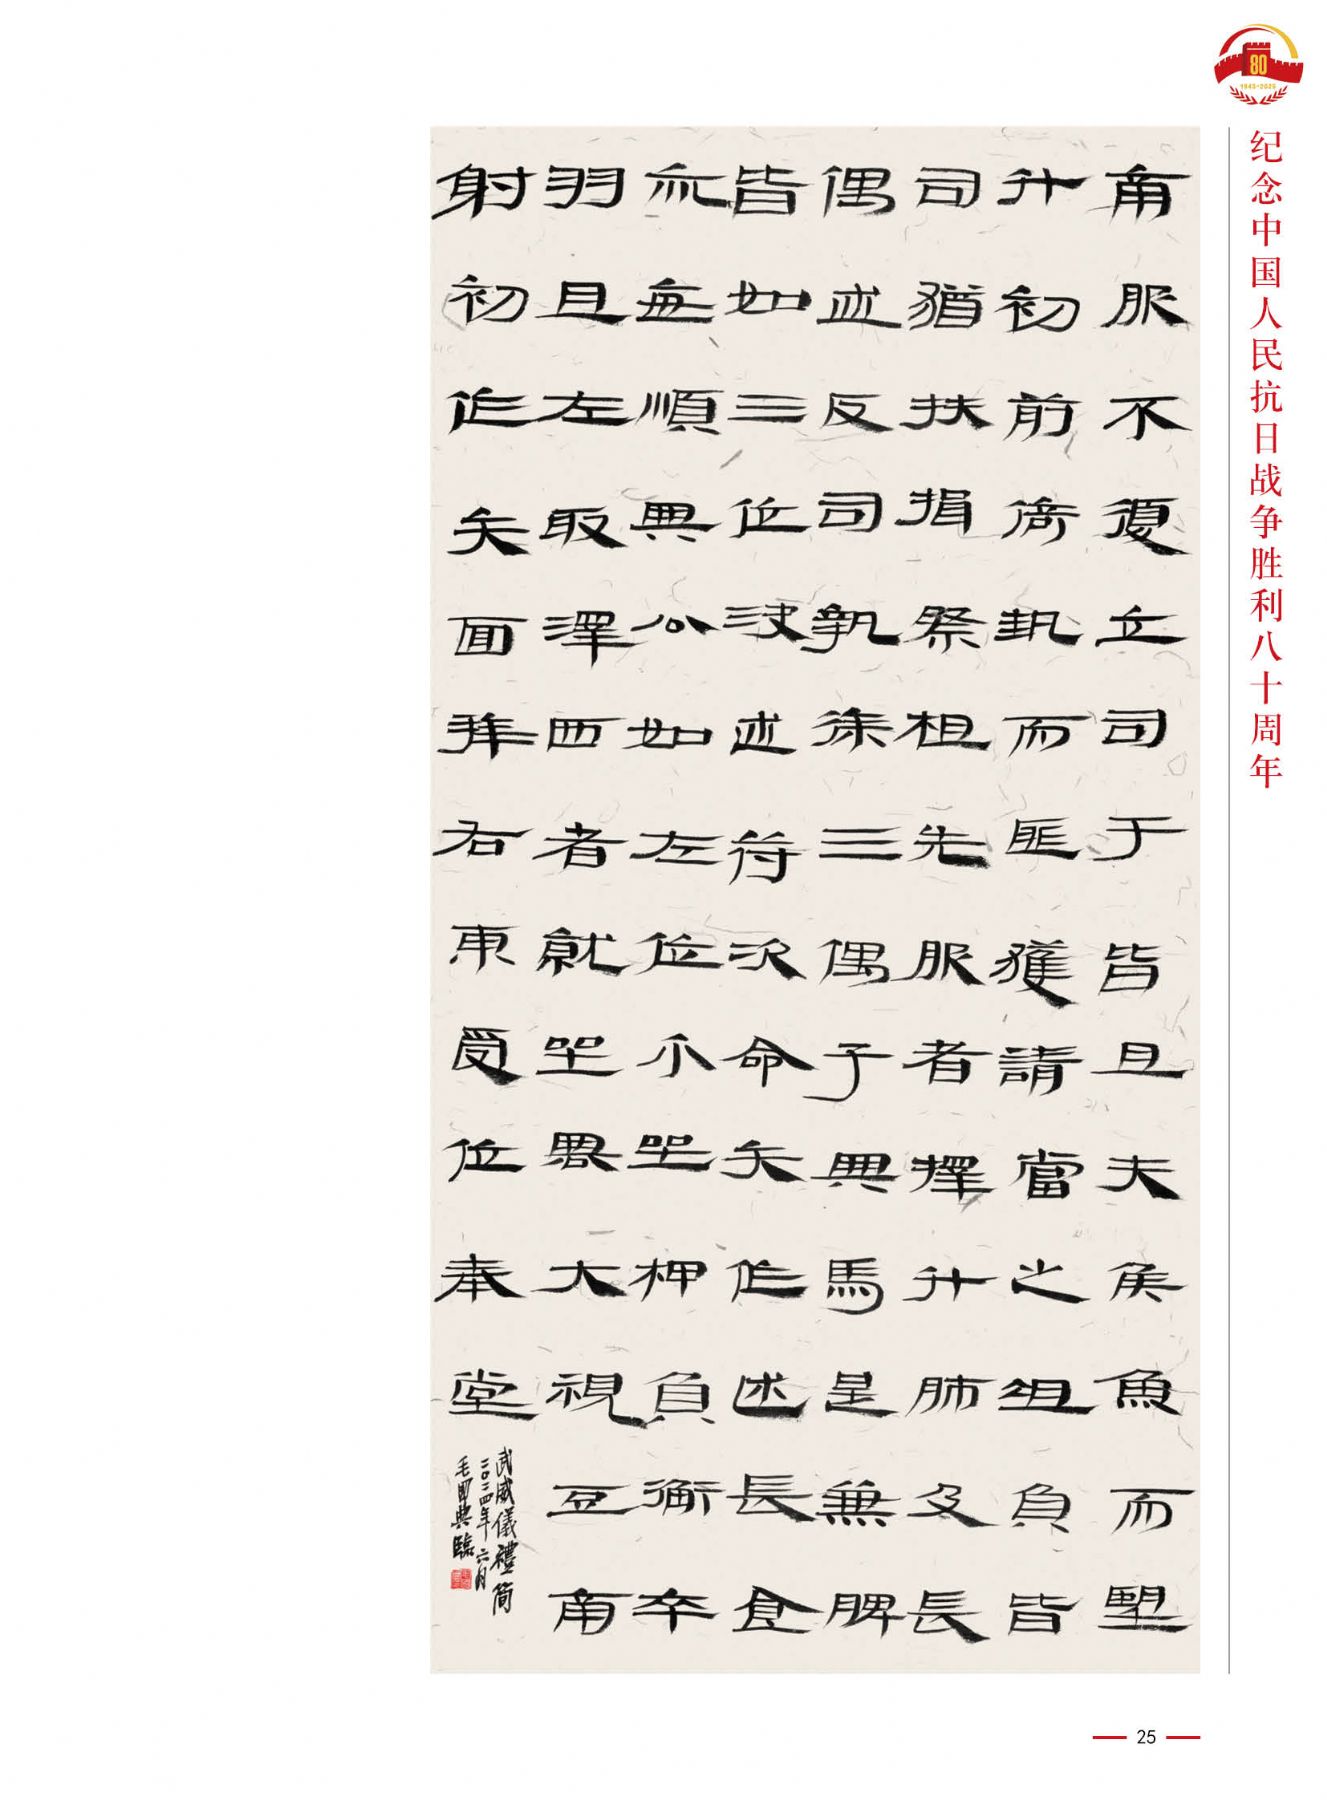 80
1945-2025
纪念中国人民抗日战争胜利八十周年
南服不復立司于皆且夫矦魚而
升初前執而匪獲請當之俎負皆
司猶扶揖祭祖先服者擇升肺及長
偶述反司執三偶于與馬是兼脾
皆如三位述待次命矢作述長食
無順與公如左位小坐柙負衡卒
羽且左取澤四者就坐畢大視豆南
射初作矢面拜右東受位奉堂
武威儀禮简
二〇二四年六月
毛四典臨
25